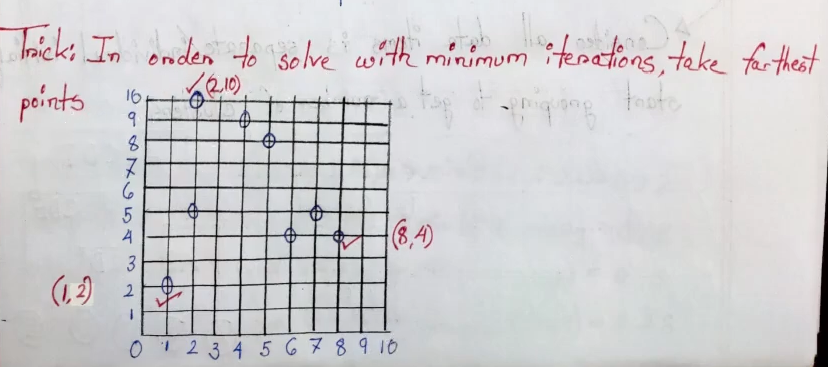 Trick: In order to solve with minimum iterations, take farthest
points
(2,10)
10
9
8
7
6
5
4 (8,4)
3
(1,2) 2
1
0 1 2 3 4 5 6 7 8 9 10